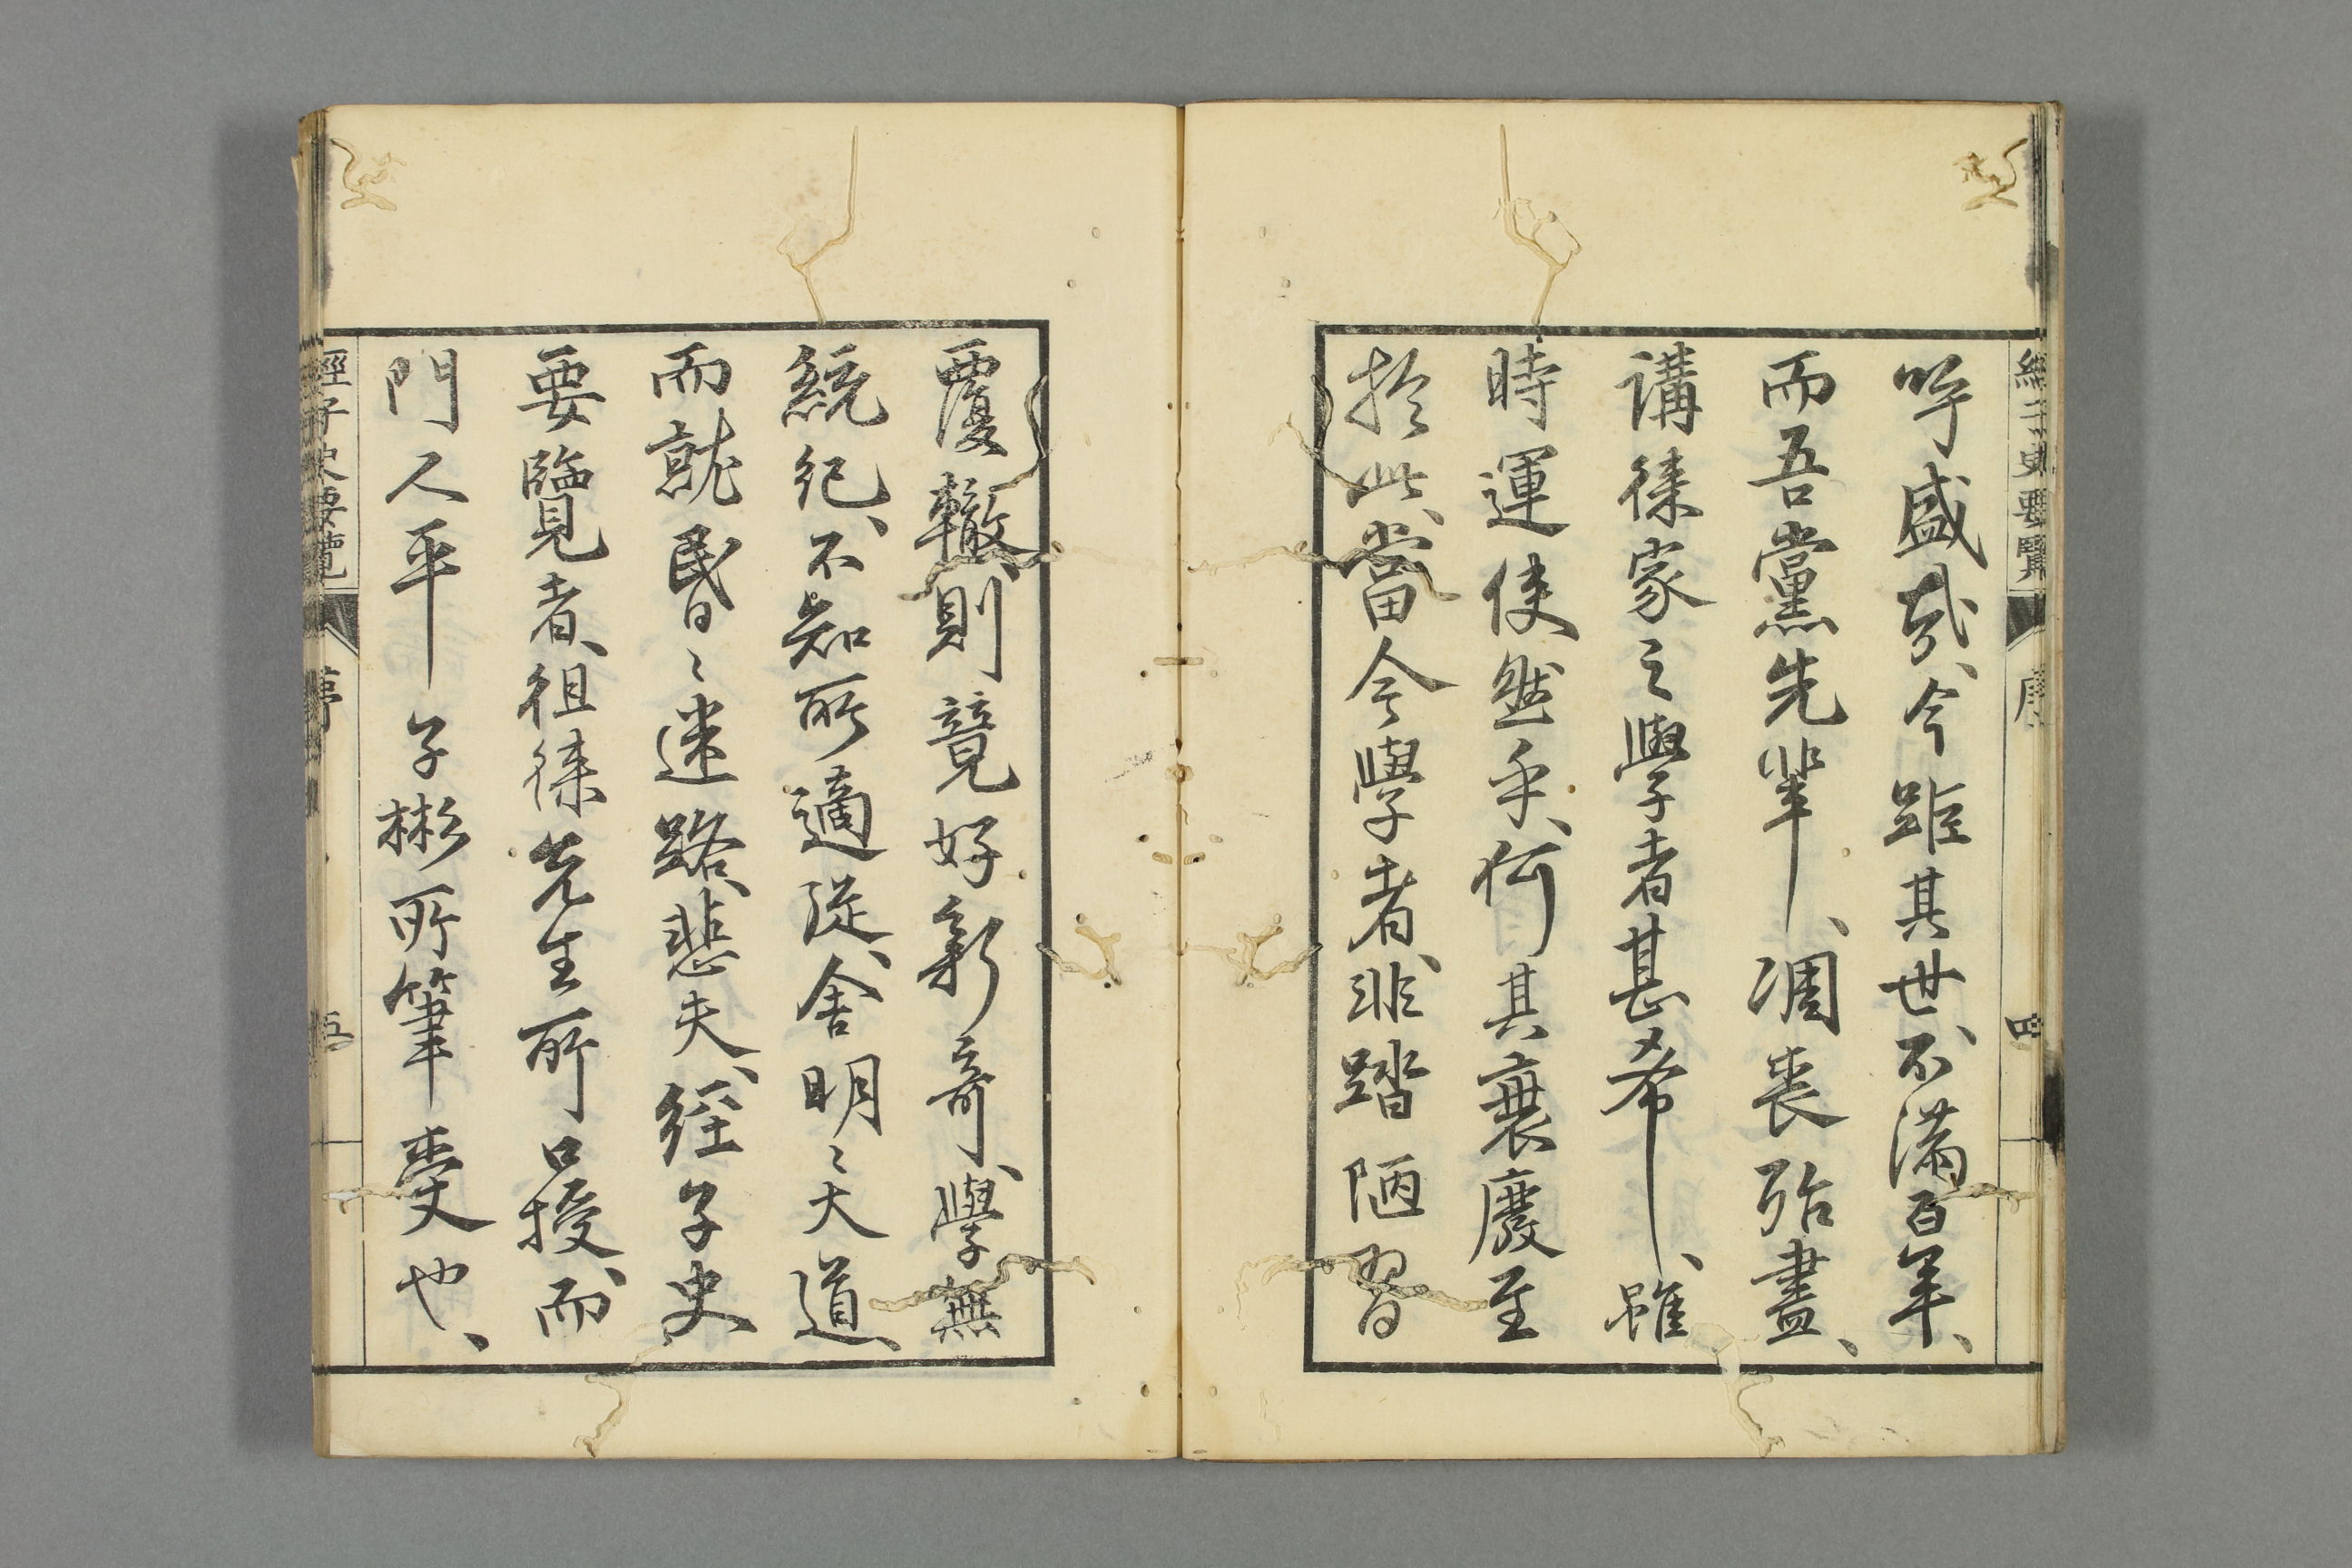 經子史要覽 序 四
吁盛哉、今距其世、不滿百年、
而吾黨先輩、凋喪殆盡、
講徠家之學者甚希、雖
時運使然乎、何其衰廢至
於此、當今學者、非踏陋習
覆轍、則競好新奇、學無
統紀、不知所適從、舍明〻大道、
而就昏〻迷路、悲夫、經子史
要覽者、徂徠先生所口授、而
門人平子彬所筆受也、
經子史要覽 序 五